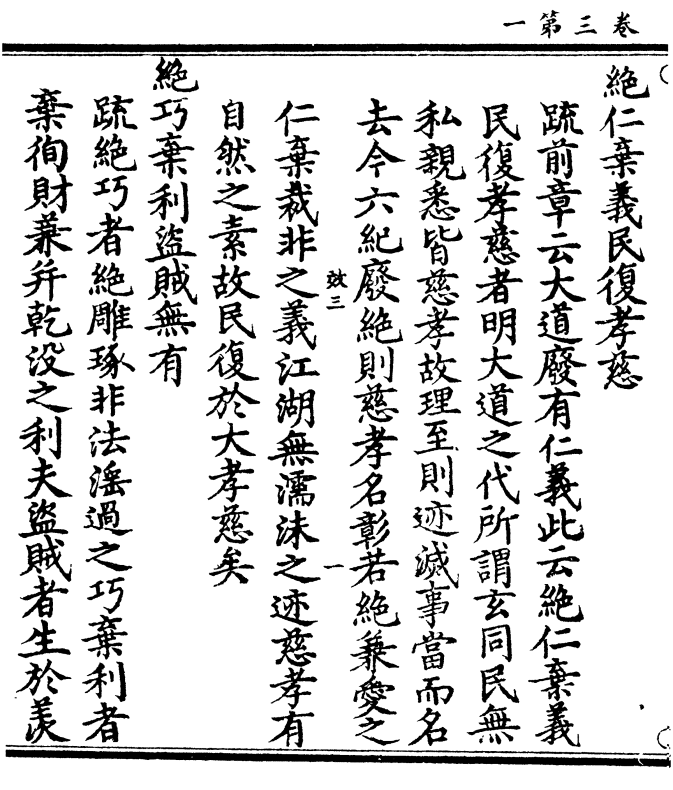 卷三第一
絶仁棄義民復孝慈
疏前章云大道廢有仁義此云絶仁棄義
民復孝慈者明大道之代所謂玄同民無
私親悉皆慈孝故理至則迹滅事當而名
去今六紀廢絶則慈孝名彰若絶兼愛之
效三
一
仁棄裁非之義江湖無濡沫之迹慈孝有
自然之素故民復於大孝慈矣
絶巧棄利盜賊無有
疏絶巧者絶雕琢非法滛過之巧棄利者
棄徇財兼并乾没之利夫盜賊者生於羨